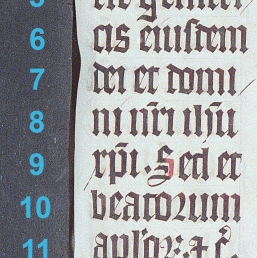 6 cis eiusdem
7 dei et domi
8 ni nr̄i ihū
9 xp̄i. Sed et
10 beatorum
11 ap̄lorꝝ. ⁊ c̄.